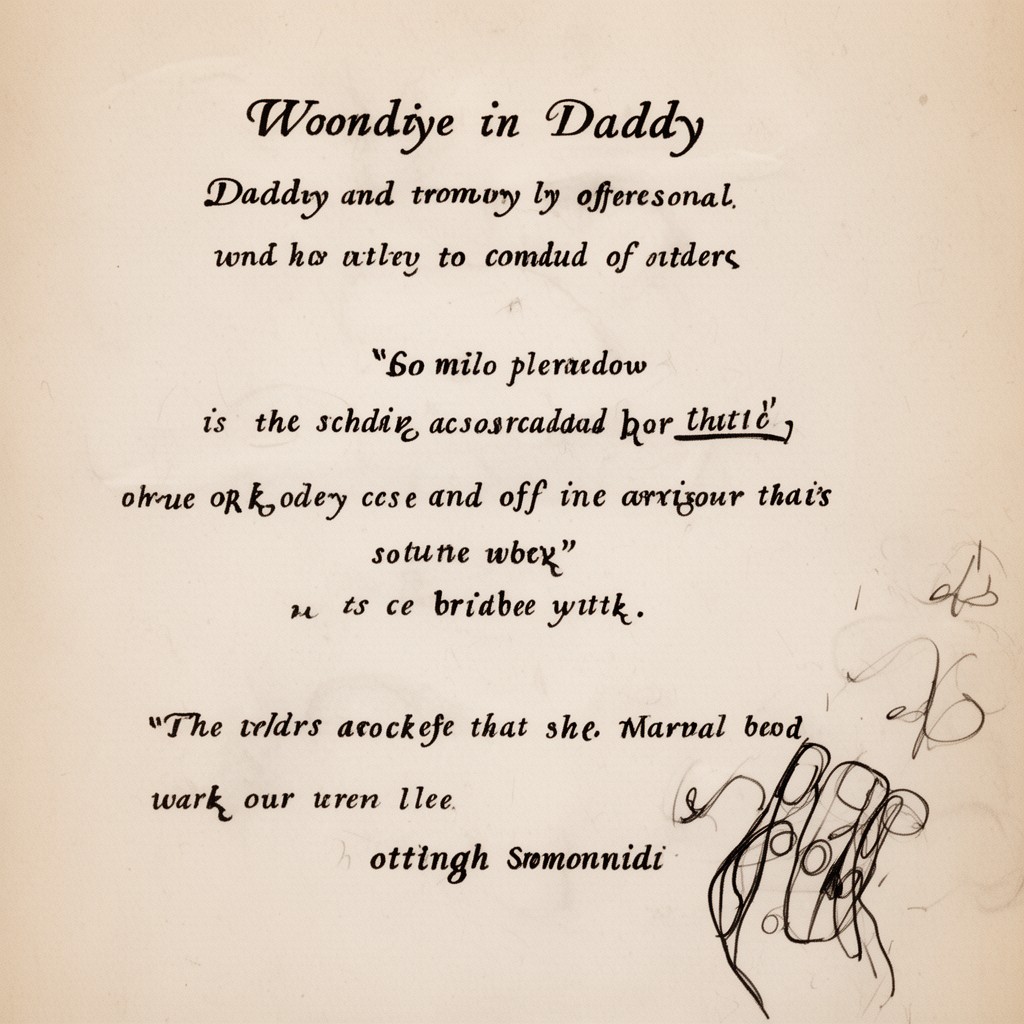 Woondiye in Daddy
Daddry and tromwy ly offeresonal.
wnd hos atley to comdud of oitders
"Bo milo pleraedow
is the schdire acsosrcaddad hor thittc",
of kodey cese and off ine arrigour thai's
sotune wbek"
ts ce bridbee yittk.
"The veldrs arockefe that she. Marval beod,
wark our uren llee.
ottingh Smomonnidi